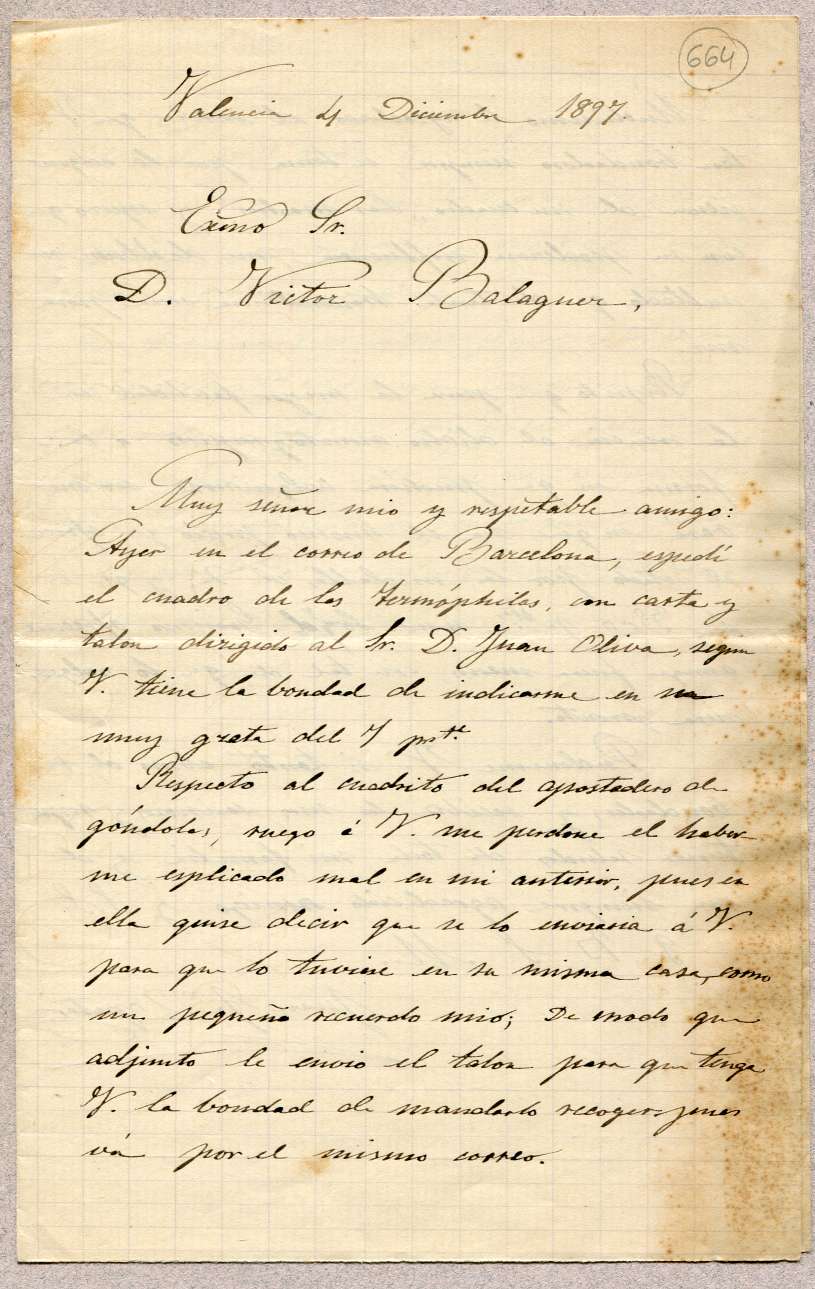 664
Valencia 4 Diciembre 1897.
Exmo Sr.
D. Victor Balaguer,
Muy señor mio y respetable amigo:
Ayer en el correo de Barcelona, espedí
el cuadro de las termóphilas, con carta y
talon dirigido al Sr. D. Juan Oliva, segun
V. tiene la bondad de indicarme en su
muy grata del 1 pr.te
Respecto al cuadrito del apostadero de
góndolas, ruego á V. me perdone el haber
me esplicado mal en mi anterior, pues en
ella quise decir que se lo enviaria á V.
para que lo tuviese en su misma casa, como
un pequeño recuerdo mio; De modo que
adjunto le envio el talon para que tenga
V. la bondad de mandarlo recoger, pues
vá por el mismo correo.